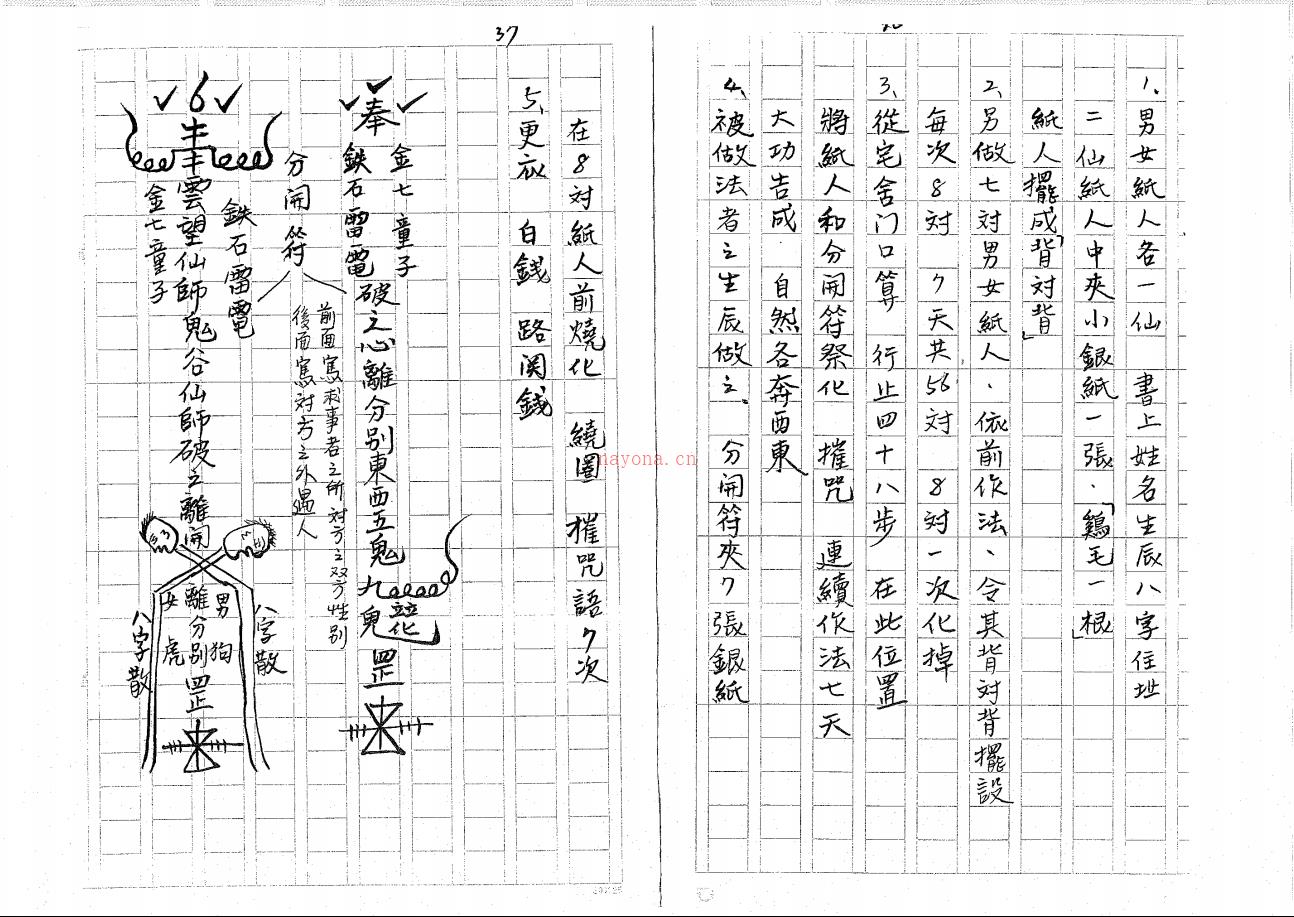 1、男女紙人各一仙 書上姓名生辰八字住址
二仙紙人中夾小銀紙一張.「鷄毛一根」
紙人擺成「背対背」
2、另做七対男女紙人、依前作法、令其背対背擺設
每次8対 7天共56対 8対一次化掉
3、從宅舍门口算 行止四十八步 在此位置
將紙人和分開符祭化 摧咒 連續作法七天
大功告成.自然各奔西東
4、被做法者之生辰做之、分開符夾7張銀紙
37
在8対紙人前燒化 繞圈 摧咒語7次
5、更衣 白錢 路関錢
金七童子
奉
鉄石雷電
破之心離分别東西五鬼九
罡
分開符
前面寫求事者之所対方之双方性别
後面寫対方之外遇人
6
鉄石雷電
雲望仙師鬼谷仙師破之離開
金七童子
八字散
男狗
離分别罡
女虎
八字散
nayona.cn